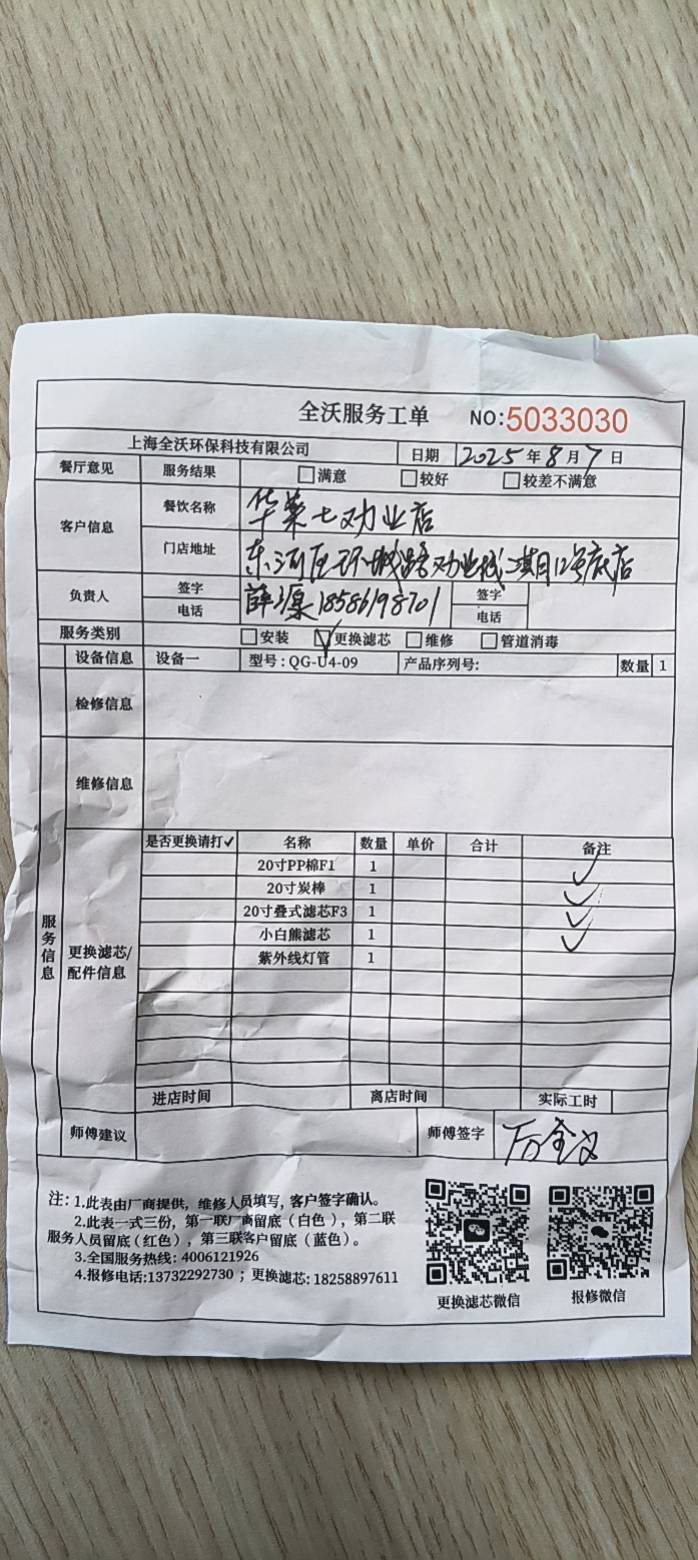 全沃服务工单 NO:5033030
上海全沃环保科技有限公司 日期 2025年8月7日
餐厅意见 服务结果 满意 较好 较差不满意
客户信息 餐饮名称 华莱士劝业店
门店地址 东河区环城路劝业城二期12号底店
负责人 签字 薛 签字
电话 18586198701 电话
服务类别 安装 更换滤芯 维修 管道消毒
设备信息 设备一 型号:QG-U4-09 产品序列号: 数量 1
检修信息
维修信息
服务信息
更换滤芯/配件信息
是否更换请打✓ 名称 数量 单价 合计 备注
20寸PP棉F1 1 ✓
20寸炭棒 1 ✓
20寸叠式滤芯F3 1 ✓
小白熊滤芯 1 ✓
紫外线灯管 1
进店时间 离店时间 实际工时
师傅建议 师傅签字
注:1.此表由厂商提供,维修人员填写,客户签字确认。
2.此表一式三份,第一联厂商留底(白色),第二联
服务人员留底(红色),第三联客户留底(蓝色)。
3.全国服务热线:4006121926
4.报修电话:13732292730;更换滤芯:18258897611
更换滤芯微信 报修微信